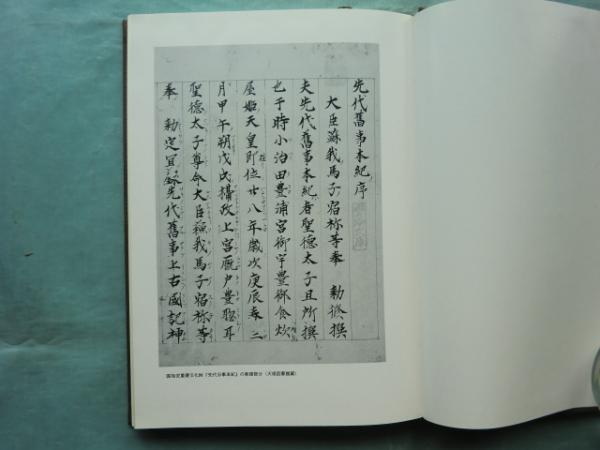 先代舊事本紀序
大臣蘇我馬子宿祢等奉 勅撰
夫先代舊事本紀者聖德太子且所撰
也于時小治田豊浦宮御宇豊御食炊
屋姬天皇即位廿八年歲次庚辰春二
月甲午朔戊戌攝政上宮厩戸豊聡耳
聖德太子尊命大臣蘇我馬子宿祢等
奉 勅定宜錄先代舊事上古國記神
国指定重要文化財『先代旧事本紀』の巻頭部分(天理図書館蔵)